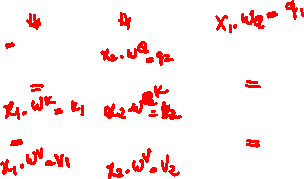 ⇓ ⇓ x₁·W^Q = q₁
= x₂·W^Q = q₂
= =
x₁·W^K = k₁ x₂·W^K = k₂
= =
x₁·W^V = V₁ x₂·W^V = V₂